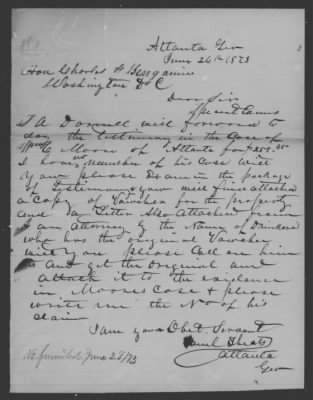 Atlanta Geo
June 26th 1873
Hon Charles F Benjamin
Washington D C
Dear Sir
Special Comr
J A Darnell will forward to
day the testimony in the Case of
Moore of Atlanta for $258.05
I have no number of his Case will
you please Examin the package
of testimony & you will find attached
a Copy of Vowcher for the property
and day Letter Also Attached from
an Attorney by the Name of
who has the original Vowcher
will you please Call on him
and get the original and
attach it to the evidence
in Moores Case & please
write me the No of his
claim
I am your Obet. Servant
Atlanta
Geo
No furnished June 28/73